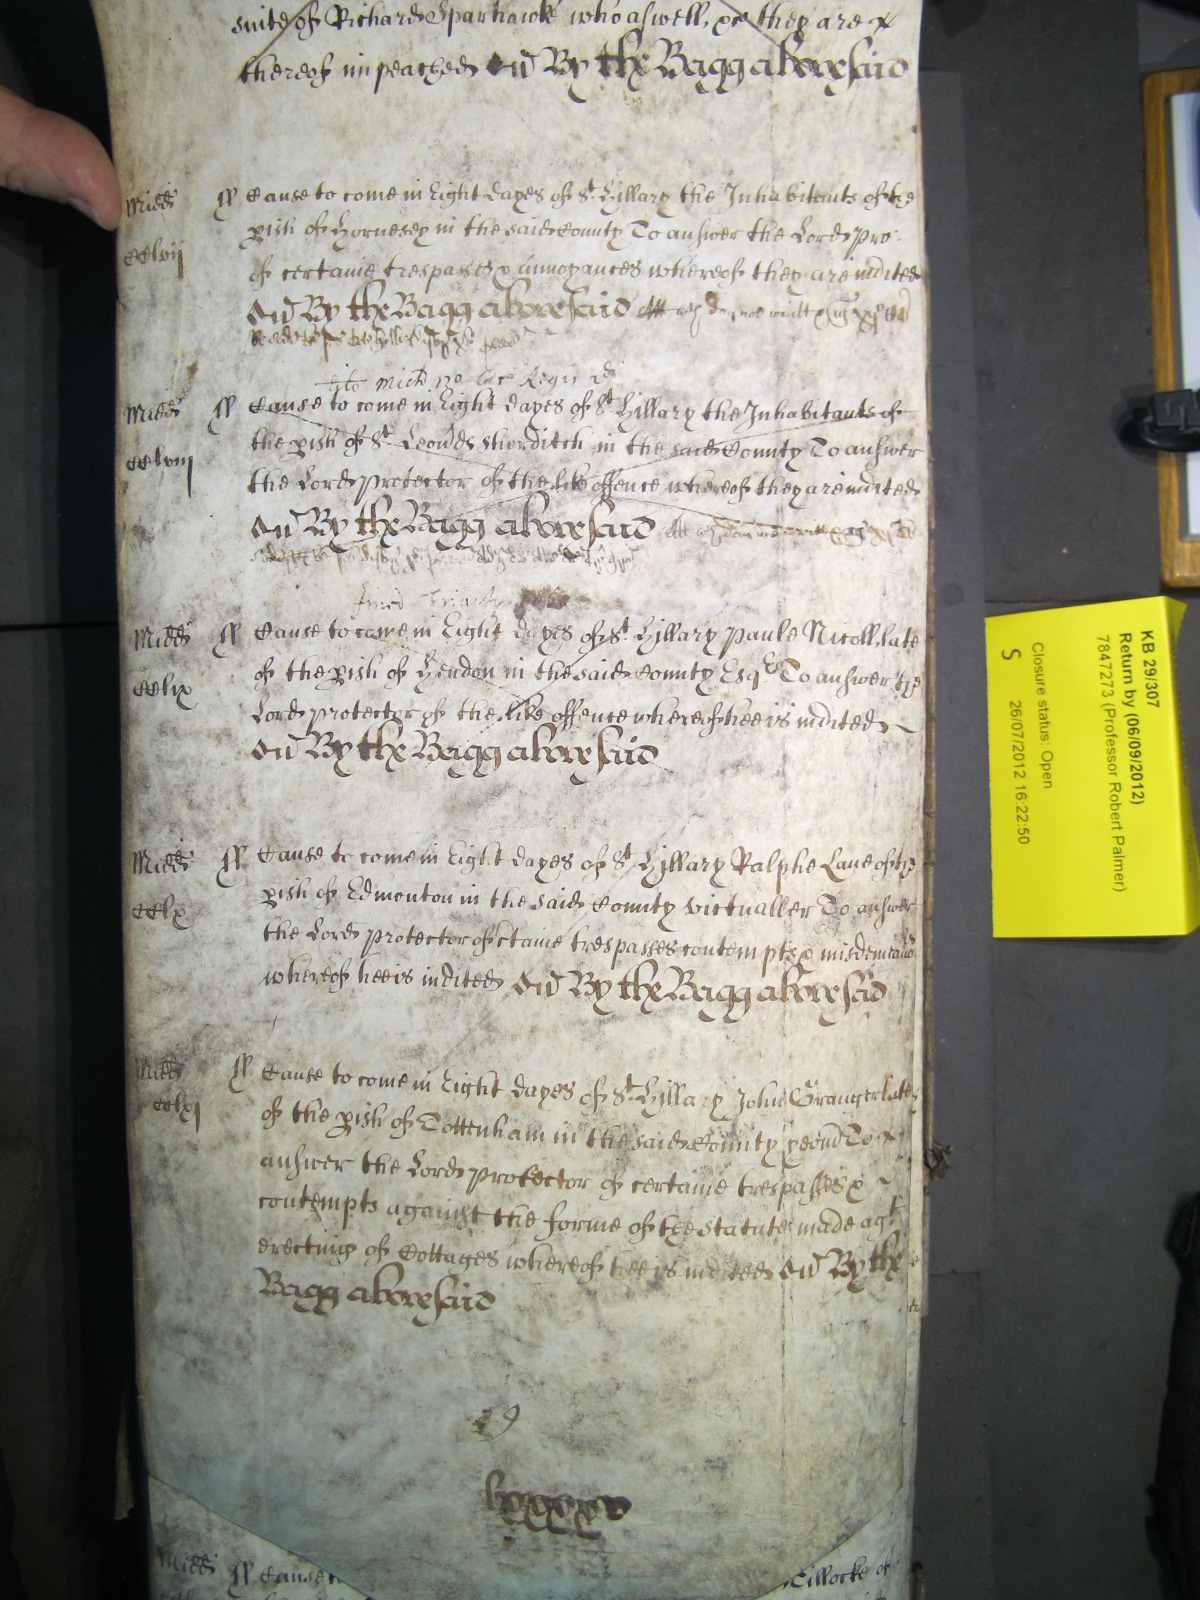 suite of Richard Sparhawke who aswell &c they are
thereof impeached And By the Bagg abovesaid
Midd ss Cause to come in Eight dayes of St Hillary the Inhabitants of the
CClvij pish of Hornesey in the said County To answer the Lord Pro:
of certaine trespasses & annoyances whereof they are indited
And By the Bagg abovesaid
Mich Regis
Midd ss Cause to come in Eight dayes of St Hillary the Inhabitants of
CClviij the pish of St Leonds Shorditch in the said County To answer
the Lord Protector of the like offence whereof they are indited
And By the Bagg abovesaid
Midd ss Cause to come in Eight dayes of St Hillary Paule Nicoll late
CClix of the pish of Hendon in the said County Esqr To answer the
Lord Protector of the like offence whereof hee is indited
And By the Bagg abovesaid
Midd ss Cause to come in Eight dayes of St Hillary Ralphe Lane of the
CClx pish of Edmonton in the said County victualler To answer
the Lord Protector of ctaine trespasses contempts & misdemeanors
whereof hee is indited And By the Bagg abovesaid
Midd ss Cause to come in Eight dayes of St Hillary John Granger late
CClxj of the pish of Tottenham in the said County yeom To
answer the Lord Protector of certaine trespasses &
contempts against the forme of the Statute made agt
erecting of Cottages whereof hee is indited And By the
Bagg abovesaid
19
Midd ss Cause t
illocke of
KB 29/307
Return by (06/09/2012)
7847273 (Professor Robert Palmer)
Closure status: Open
S 26/07/2012 16:22:50